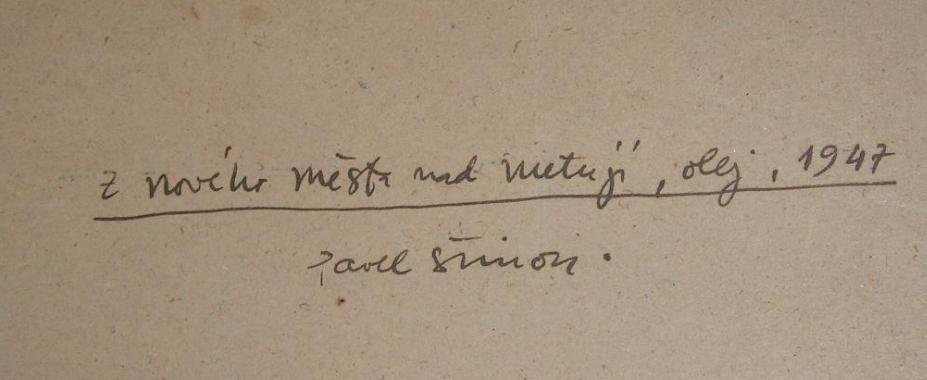 z nového města nad metují, olej, 1947
pavel šimon.